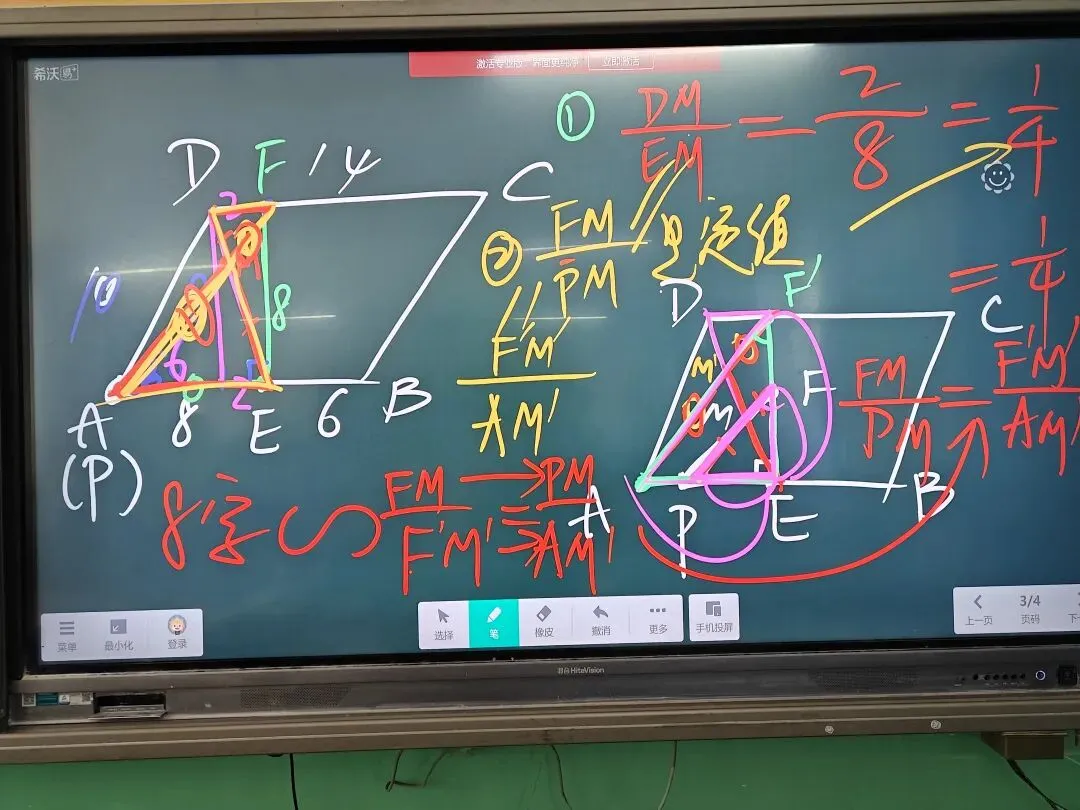 希沃易+
激活专业版,界面更纯净 立即激活
① DM/EM = 2/8 = 1/4
D F 14 C
10
8
6
2
A 8 E 6 B
(P)
② FM/PM 是定值
F'M'/AM'
= 1/4
D F' C
M'
M F
FM/PM = F'M'/AM'
A P E B
8字 ∽ FM/F'M' = PM/AM'
菜单
最小化
登录
选择
笔
橡皮
撤消
更多
手机投屏
上一页
3/4
页码
下
HiteVision